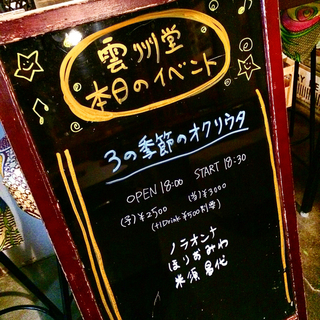 雲州堂
本日のイベント
3の季節のオクリウタ
OPEN 18:00 START 18:30
(予)¥2500 (当)¥3000
(+1Drink ¥500別途)
ノラオンナ
ほりおみわ
米須昌代